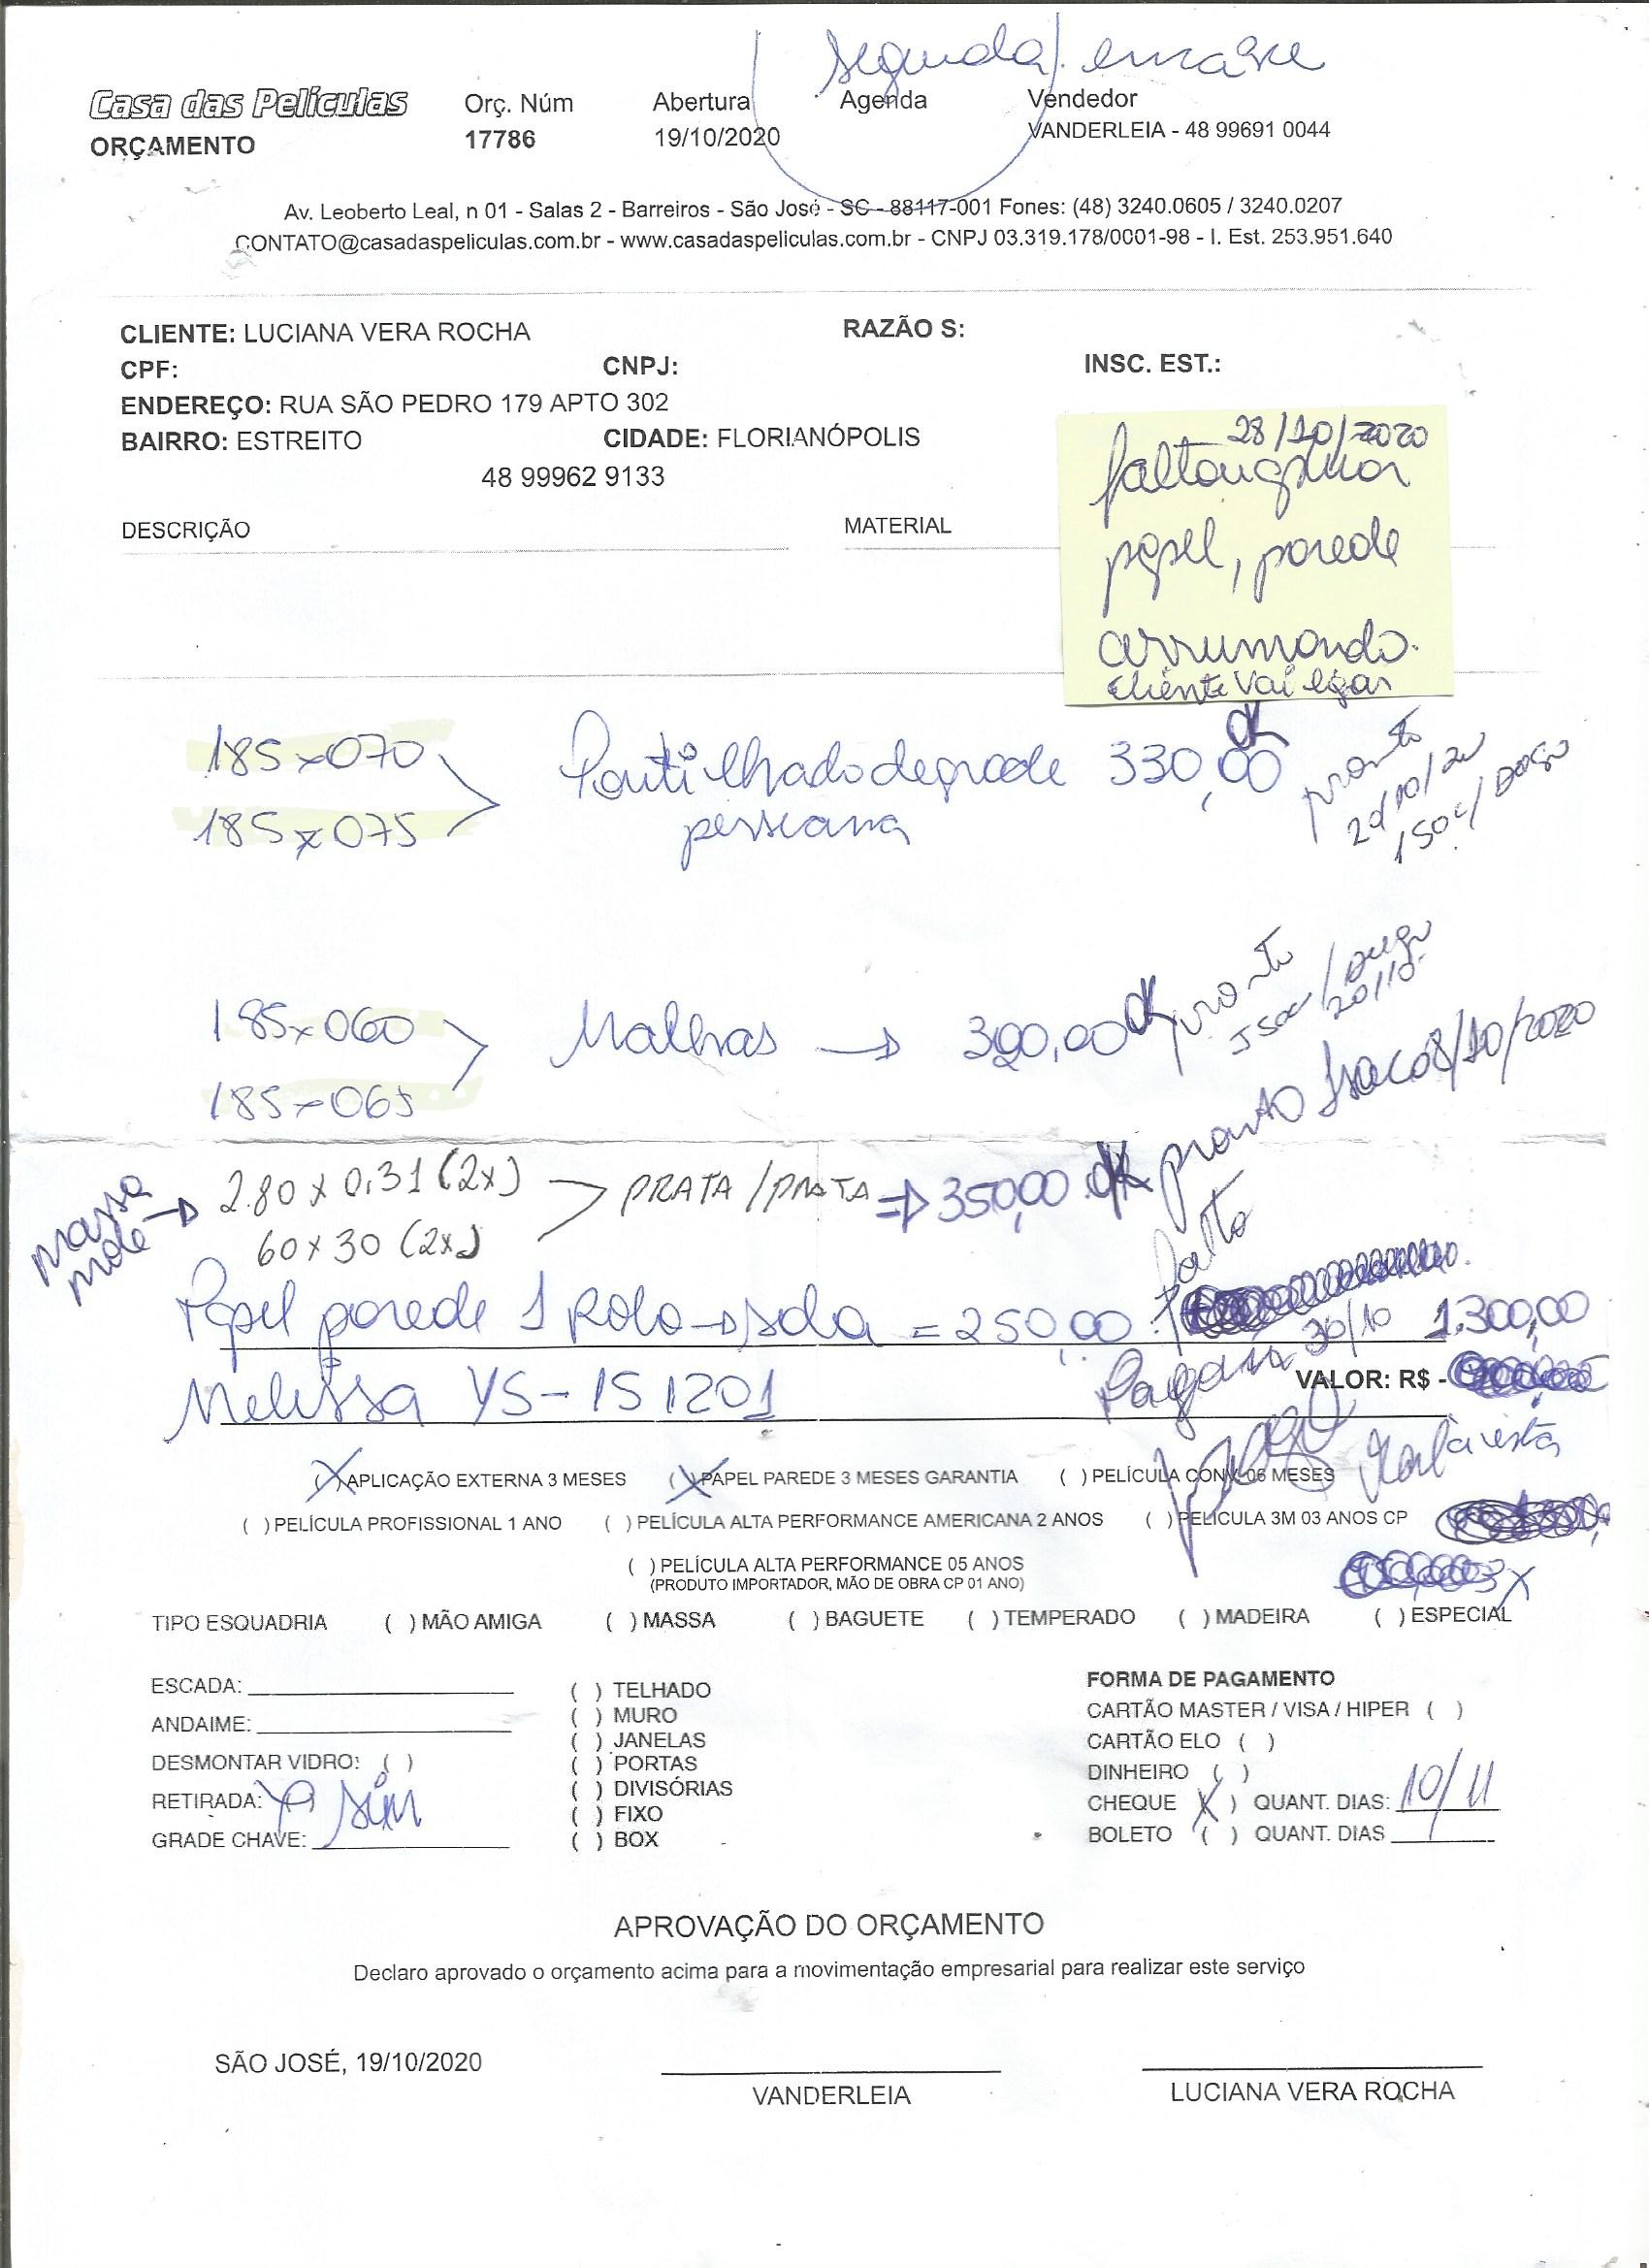 segunda
Casa das Películas
ORÇAMENTO
Orç. Núm
17786
Abertura
19/10/2020
Agenda
Vendedor
VANDERLEIA - 48 99691 0044
Av. Leoberto Leal, n 01 - Salas 2 - Barreiros - São José - SC - 88117-001 Fones: (48) 3240.0605 / 3240.0207
CONTATO@casadaspeliculas.com.br - www.casadaspeliculas.com.br - CNPJ 03.319.178/0001-98 - I. Est. 253.951.640
CLIENTE: LUCIANA VERA ROCHA
RAZÃO S:
CPF:
CNPJ:
INSC. EST.:
ENDEREÇO: RUA SÃO PEDRO 179 APTO 302
BAIRRO: ESTREITO
CIDADE: FLORIANÓPOLIS
48 99962 9133
28/10/2020
faltou
papel, parede
arrumando.
cliente vai ligar
DESCRIÇÃO
MATERIAL
185x070
185x075
Pontilhado degrade 330,00 ok
persiana
pronto
20/10/20
185x060
185x065
Malhas → 300,00 ok
pronto
20/10
pronto Isac 28/10/2020
massa
mole → 2.80 x 0,31 (2x)
60 x 30 (2x)
PRATA / PRATA ⇒ 350,00 ok
falta
Papel parede 1 Rolo → sala = 250,00
30/10
1.300,00
VALOR: R$ -
Melissa YS-151201
à vista
(X) APLICAÇÃO EXTERNA 3 MESES
(X) PAPEL PAREDE 3 MESES GARANTIA
( ) PELÍCULA CONV. 06 MESES
( ) PELÍCULA PROFISSIONAL 1 ANO
( ) PELÍCULA ALTA PERFORMANCE AMERICANA 2 ANOS
( ) PELÍCULA 3M 03 ANOS CP
( ) PELÍCULA ALTA PERFORMANCE 05 ANOS
(PRODUTO IMPORTADOR, MÃO DE OBRA CP 01 ANO)
3x
TIPO ESQUADRIA ( ) MÃO AMIGA ( ) MASSA ( ) BAGUETE ( ) TEMPERADO ( ) MADEIRA ( ) ESPECIAL
ESCADA:
ANDAIME:
DESMONTAR VIDRO: ( )
RETIRADA: sim
GRADE CHAVE:
( ) TELHADO
( ) MURO
( ) JANELAS
( ) PORTAS
( ) DIVISÓRIAS
( ) FIXO
( ) BOX
FORMA DE PAGAMENTO
CARTÃO MASTER / VISA / HIPER ( )
CARTÃO ELO ( )
DINHEIRO ( )
CHEQUE (X) QUANT. DIAS: 10/11
BOLETO ( ) QUANT. DIAS
APROVAÇÃO DO ORÇAMENTO
Declaro aprovado o orçamento acima para a movimentação empresarial para realizar este serviço
SÃO JOSÉ, 19/10/2020
VANDERLEIA
LUCIANA VERA ROCHA